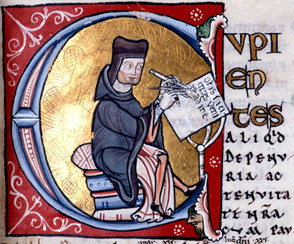 CVPI
EN
TES
ALIQ'D
DE PENV
RIA AC
TENVITA
TE NRA
CVM PAV